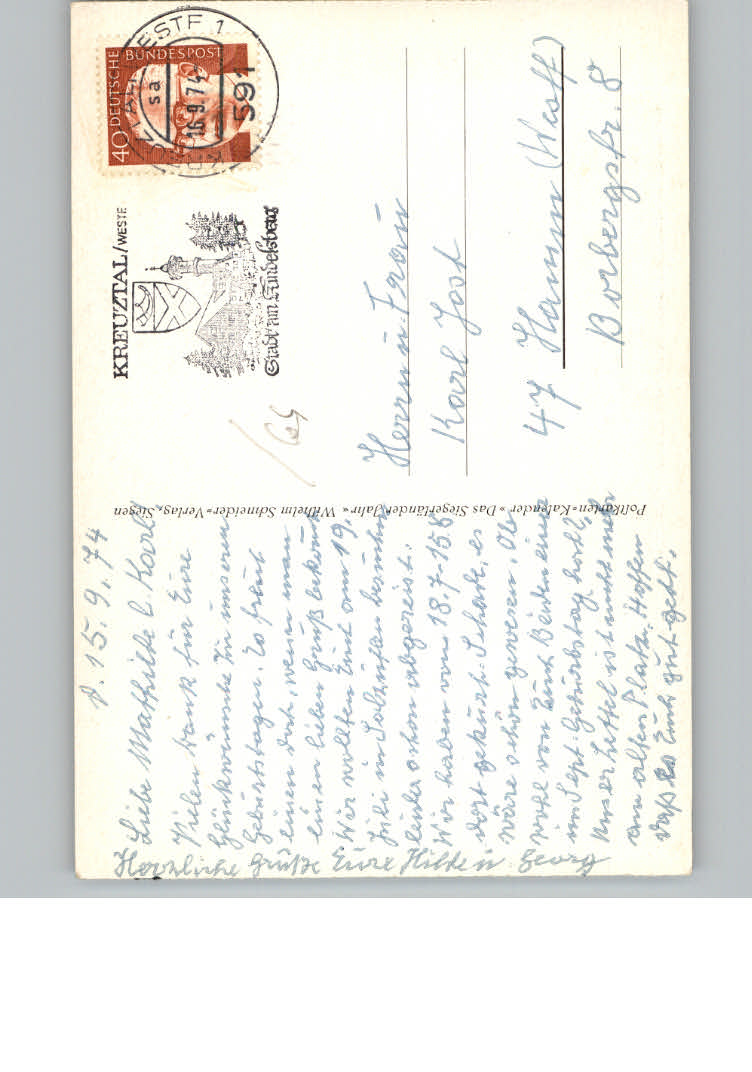 d. 15.9.74
Liebe Mathilde l. Karl
Vielen Dank für Eure
Glückwünsche zu unseren
Geburtstagen. Es freut
einen doch, wenn man
einen lieben Gruß bekommt
Wir wollten Euch am 19.
Juli in Salzuflen besuchen
leider schon abgereist.
Wir haben vom 18.7-15.8
dort gekurt. Schade, es
wäre schön gewesen. Ob
wohl von Euch Beiden einer
im Sept. Geburtstag hat?
Unser Zettel ist nicht mehr
am alten Platz. Hoffen
daß es Euch gut geht.
Herzliche Grüße Eure Hilde u. Georg
Postkarten-Kalender »Das Siegerländer Jahr« Wilhelm Schneider-Verlag, Siegen
KREUZTAL/WESTF
Stadt am Kindelsberg
40 DEUTSCHE BUNDESPOST
591
KREUZTAL WESTF 1
sa
16.9.74
/69
Herrn u. Frau
Karl Jost
47 Hamm (Westf)
Borbergstr. 8